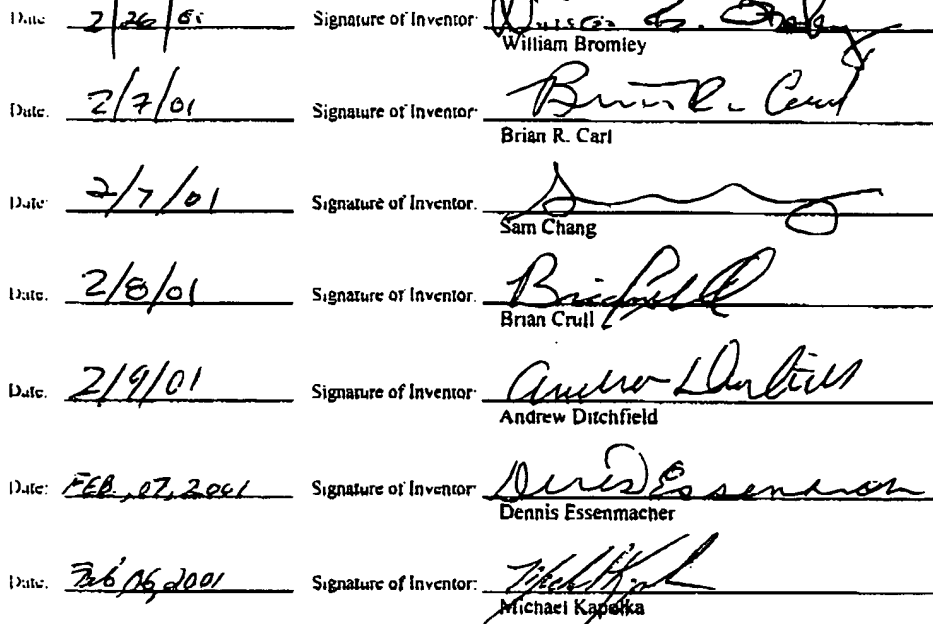 Date: 2/26/01 Signature of Inventor:
William Bromley
Date: 2/7/01 Signature of Inventor: Brian R. Carl
Brian R. Carl
Date: 2/7/01 Signature of Inventor:
Sam Chang
Date: 2/8/01 Signature of Inventor:
Brian Crull
Date: 2/9/01 Signature of Inventor: Andrew Ditchfield
Andrew Ditchfield
Date: FEB., 07, 2001 Signature of Inventor: Dennis Essenmacher
Dennis Essenmacher
Date: Feb 06, 2001 Signature of Inventor:
Michael Kapolka